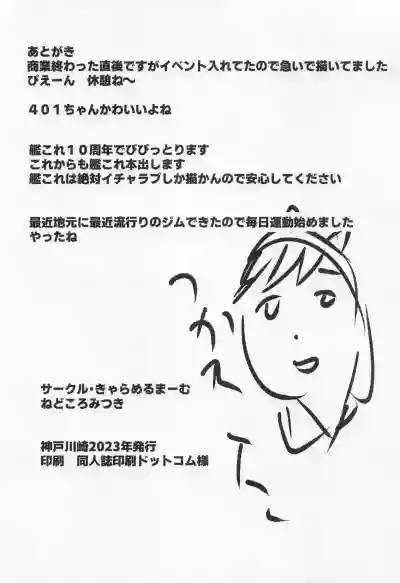 あとがき
商業終わった直後ですがイベント入れてたので急いで描いてました
びえーん　休憩ね～
４０１ちゃんかわいいよね
艦これ１０周年でびびっとります
これからも艦これ本出します
艦これは絶対イチャラブしか描かんので安心してください
最近地元に最近流行りのジムできたので毎日運動始めました
やったね
つかれた
サークル・きゃらめるまーむ
ねどころみつき
神戸川崎2023年発行
印刷　同人誌印刷ドットコム様